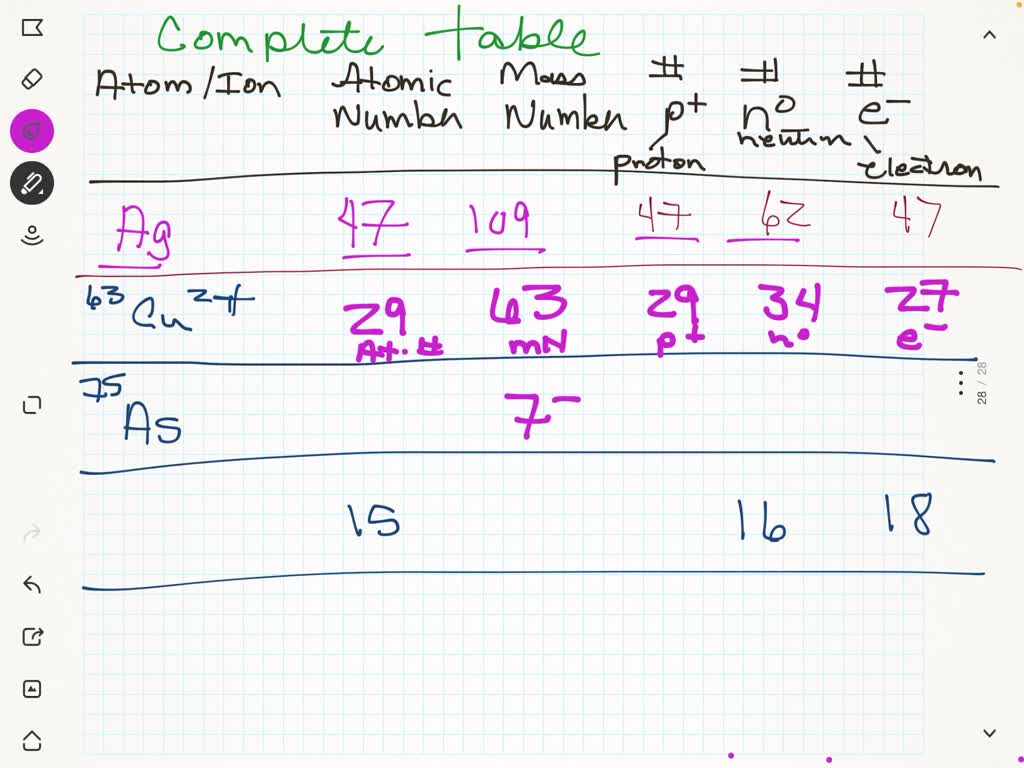 Complete table
Atom/Ion Atomic Number Mass Number # p+ proton # n° neutron # e- electron
Ag 47 109 47 62 47
63 Cu 2+ 29 At. # 63 mN 29 p+ 34 n° 27 e-
75 As 7-
15 16 18
28 / 28